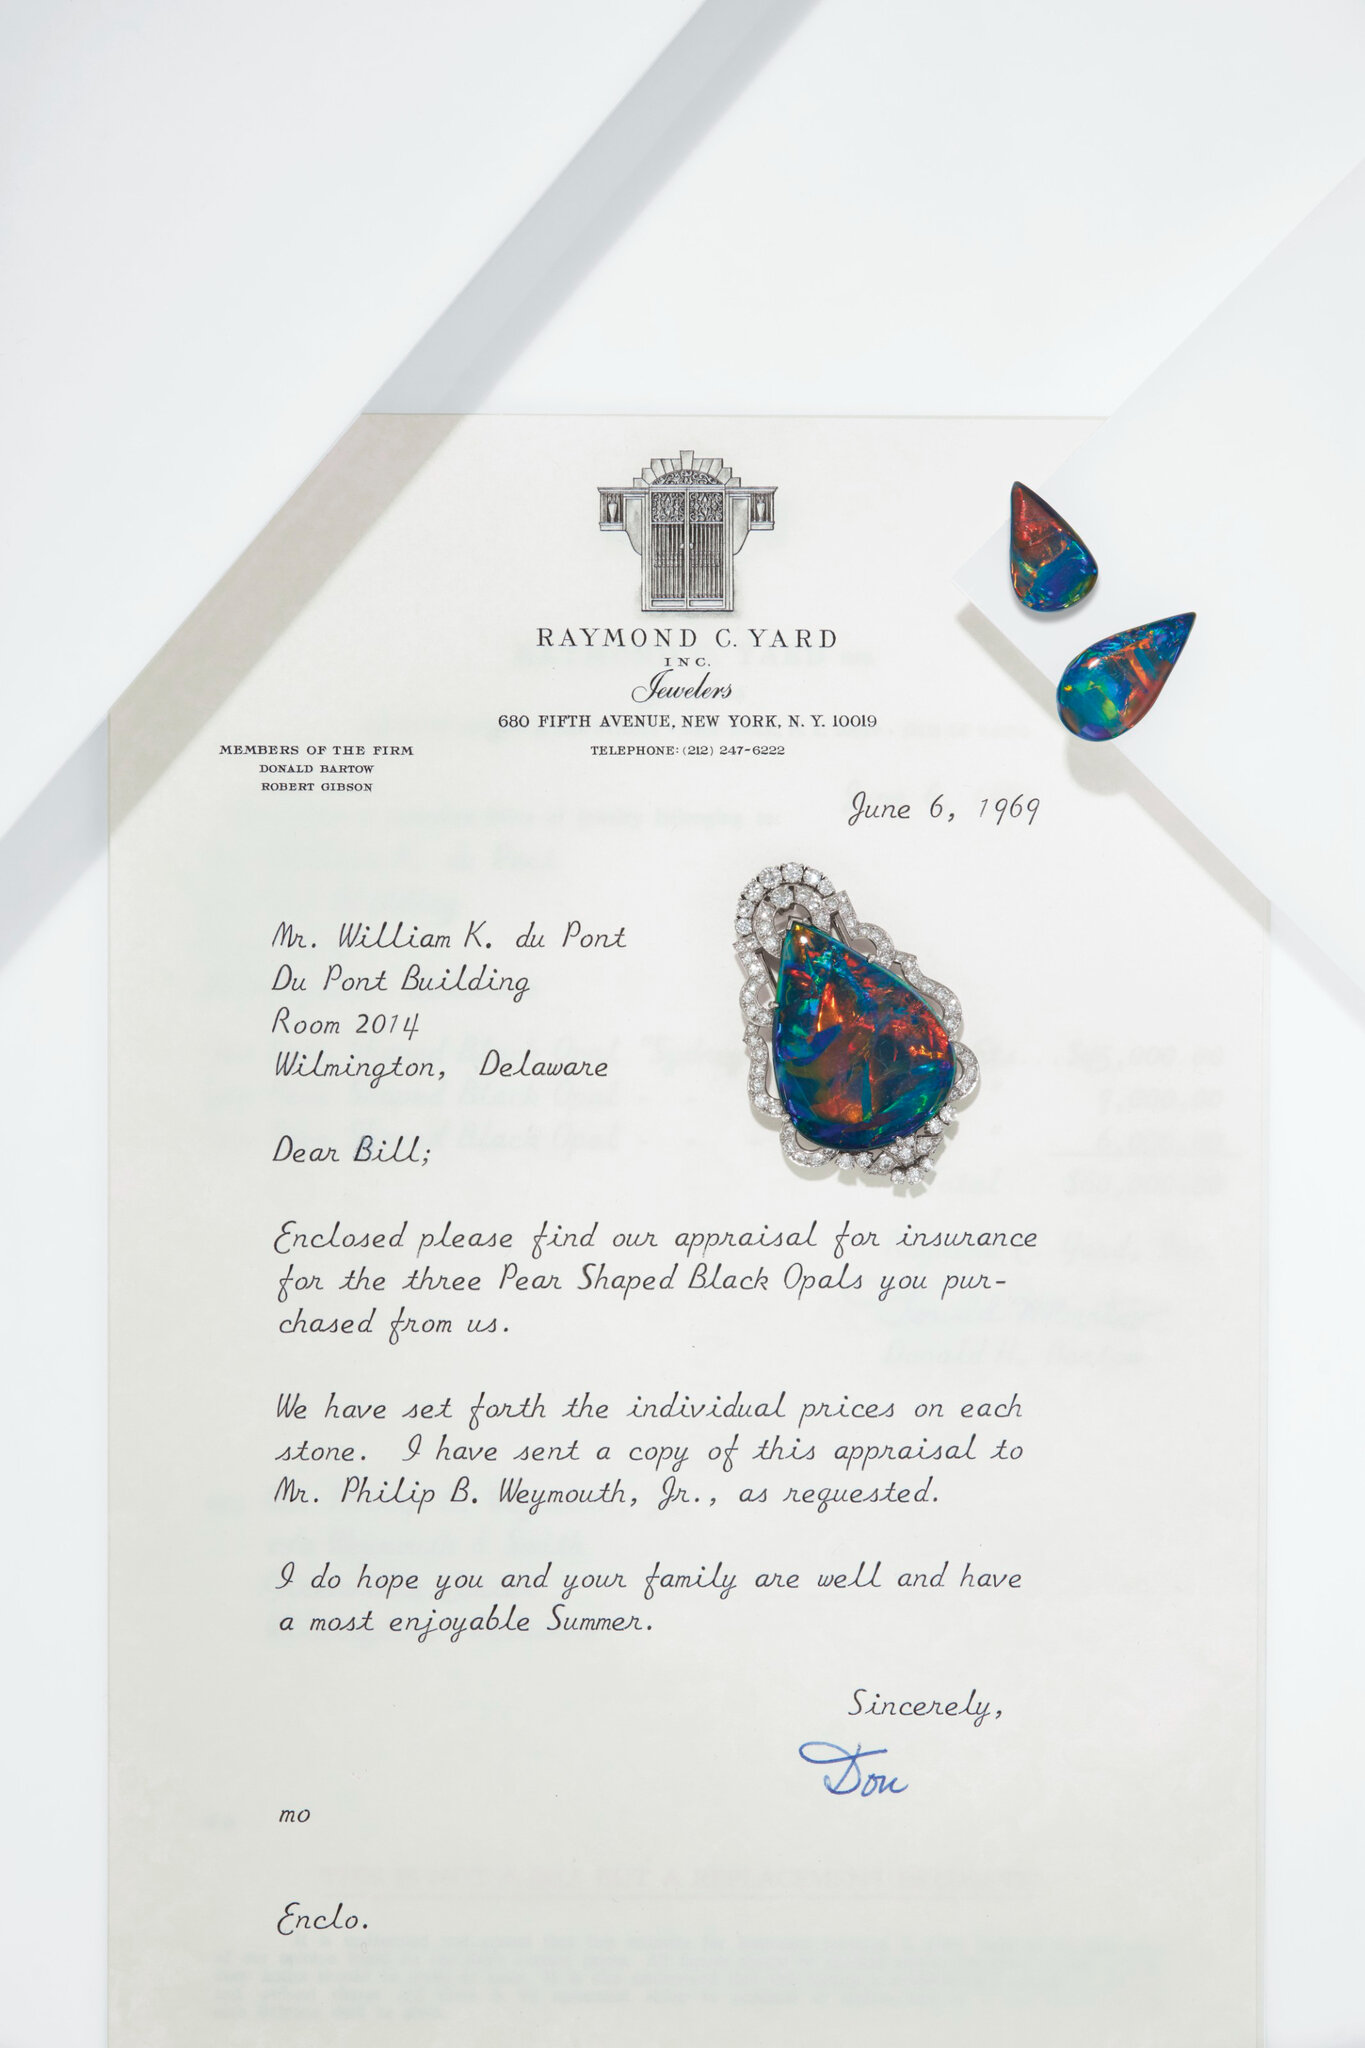 RAYMOND C. YARD
INC.
Jewelers
680 FIFTH AVENUE, NEW YORK, N. Y. 10019
TELEPHONE: (212) 247-6222
MEMBERS OF THE FIRM
DONALD BARTOW
ROBERT GIBSON
June 6, 1969
Mr. William K. du Pont
Du Pont Building
Room 2014
Wilmington, Delaware
Dear Bill;
Enclosed please find our appraisal for insurance
for the three Pear Shaped Black Opals you pur-
chased from us.
We have set forth the individual prices on each
stone. I have sent a copy of this appraisal to
Mr. Philip B. Weymouth, Jr., as requested.
I do hope you and your family are well and have
a most enjoyable Summer.
Sincerely,
Don
mo
Enclo.